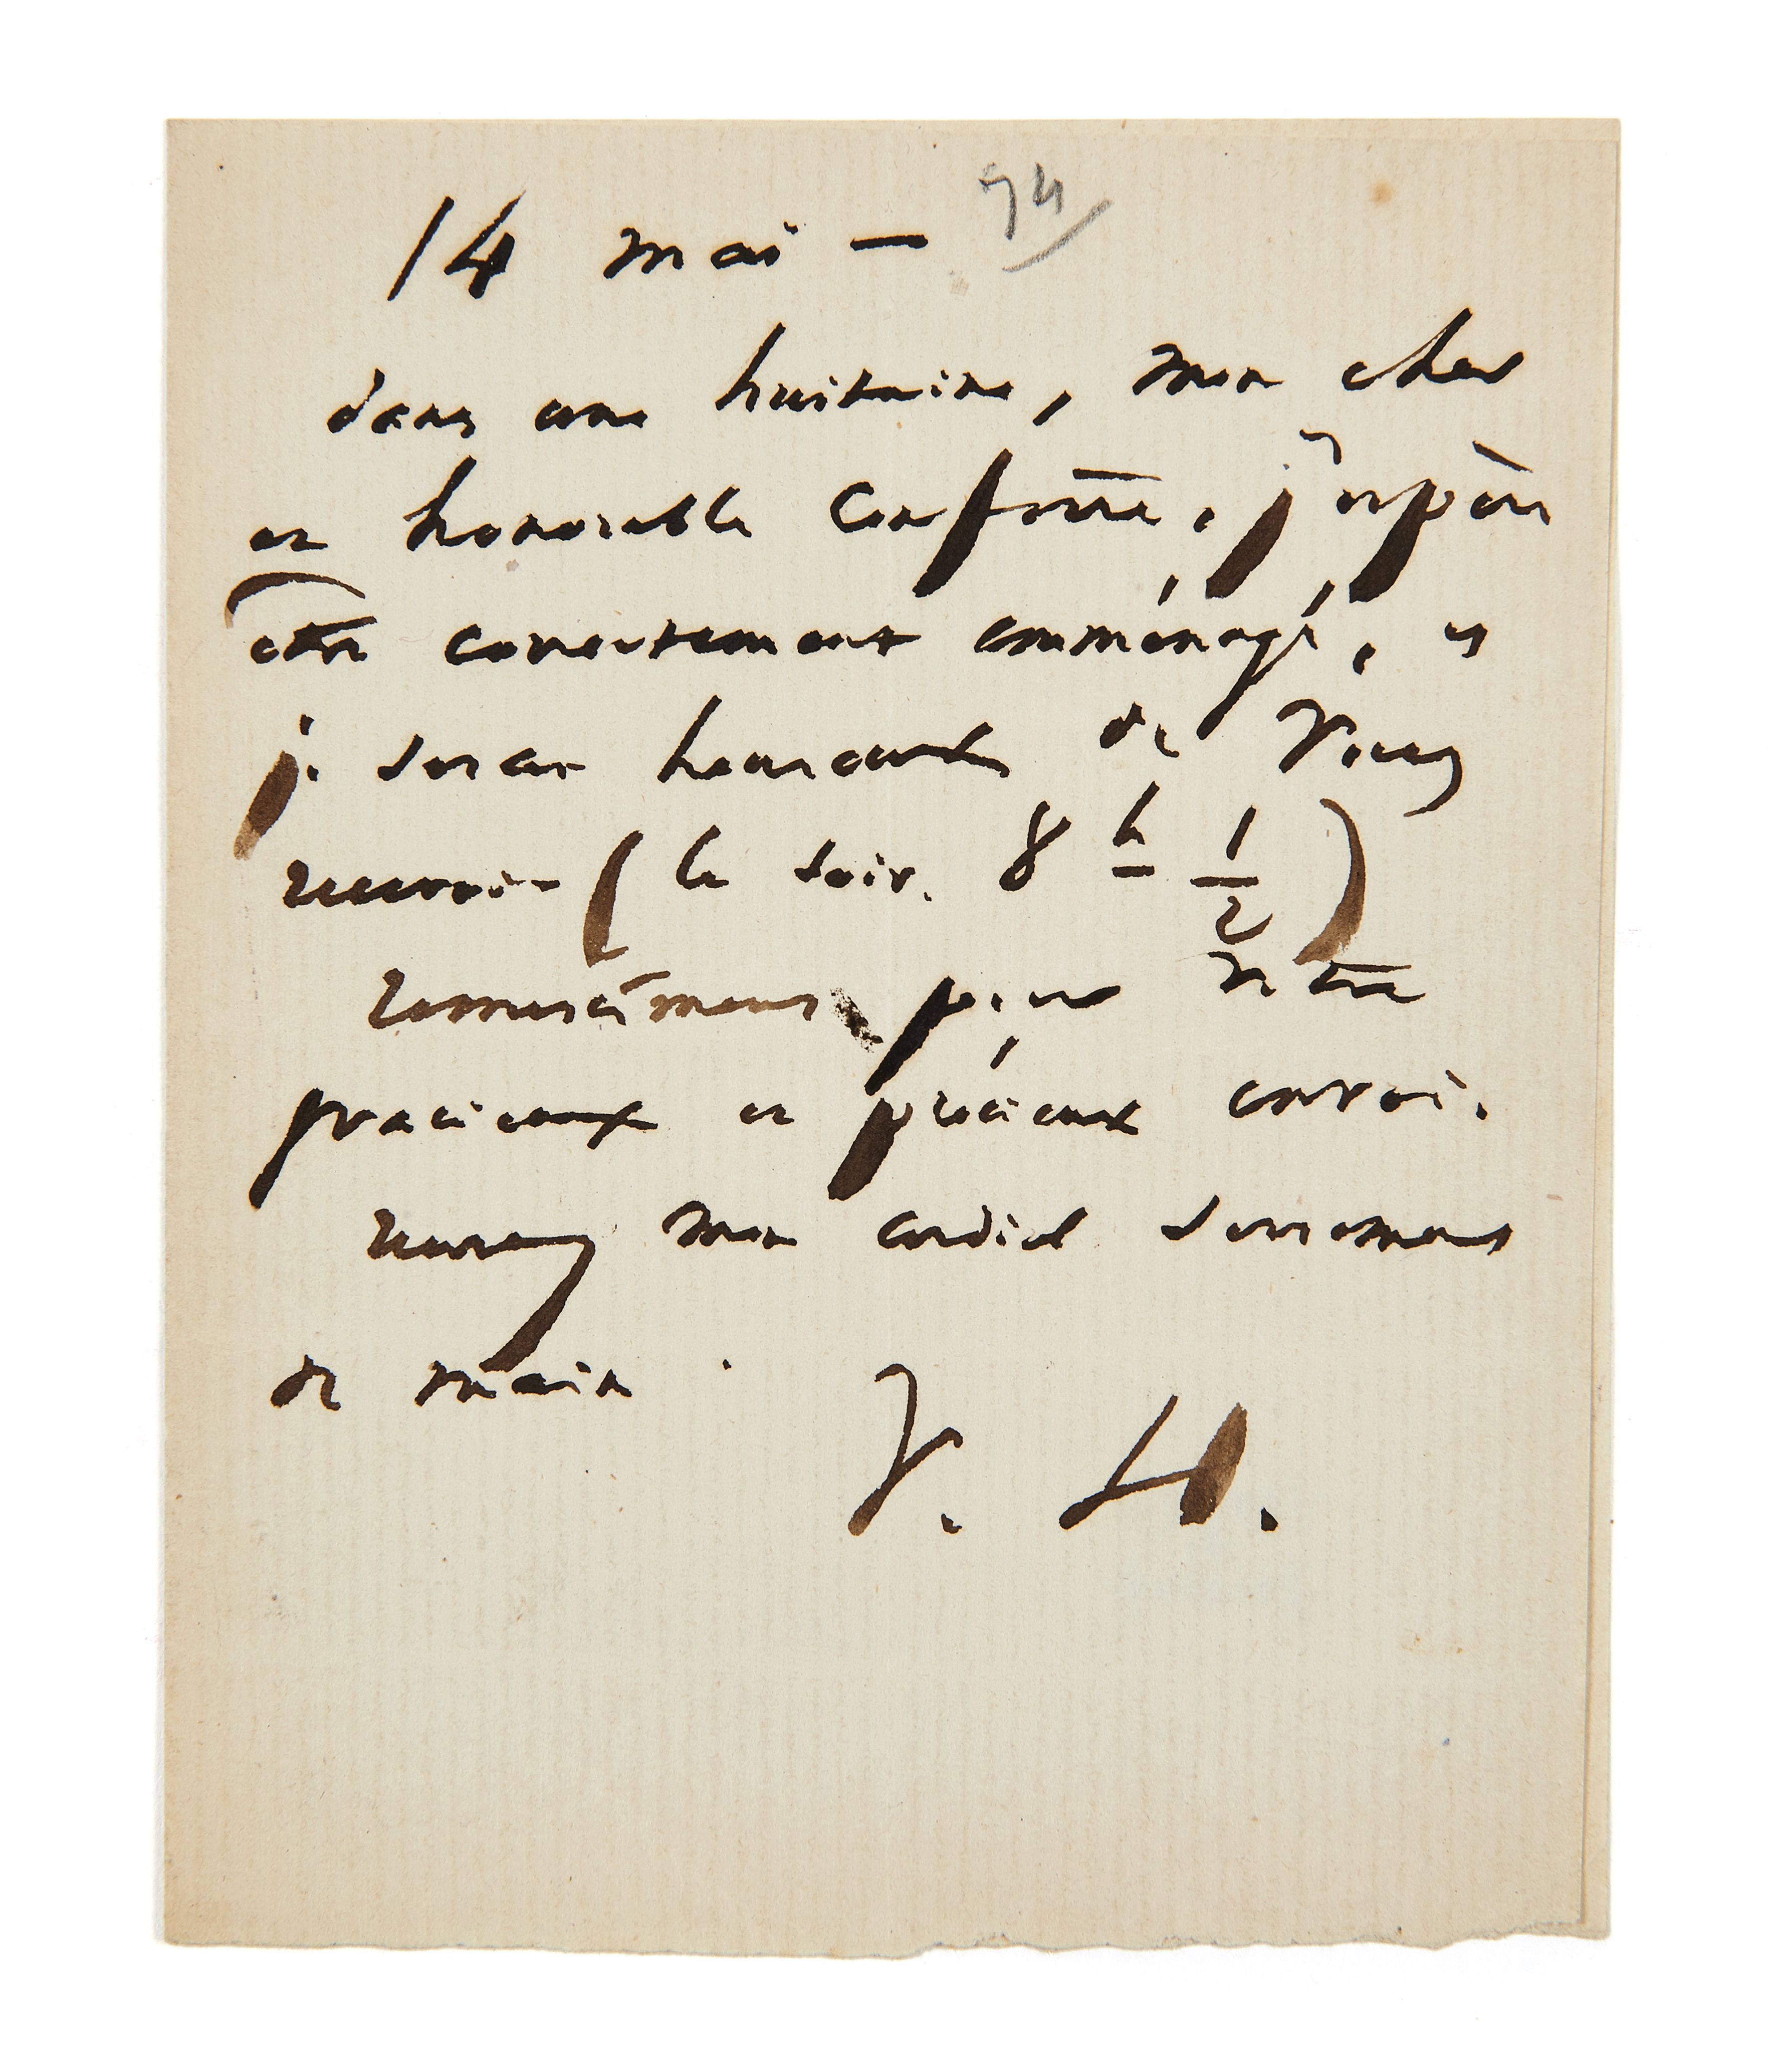 14 mai — 74
dans une huitaine, mon cher
et honorable confrère, j'espère
être correctement emménagé, et
je serai heureux de vous
recevoir (le soir. 8 h 1/2)
remercîments pour votre
gracieux et précieux envoi.
recevez mon cordial serrement
de main.
V. H.